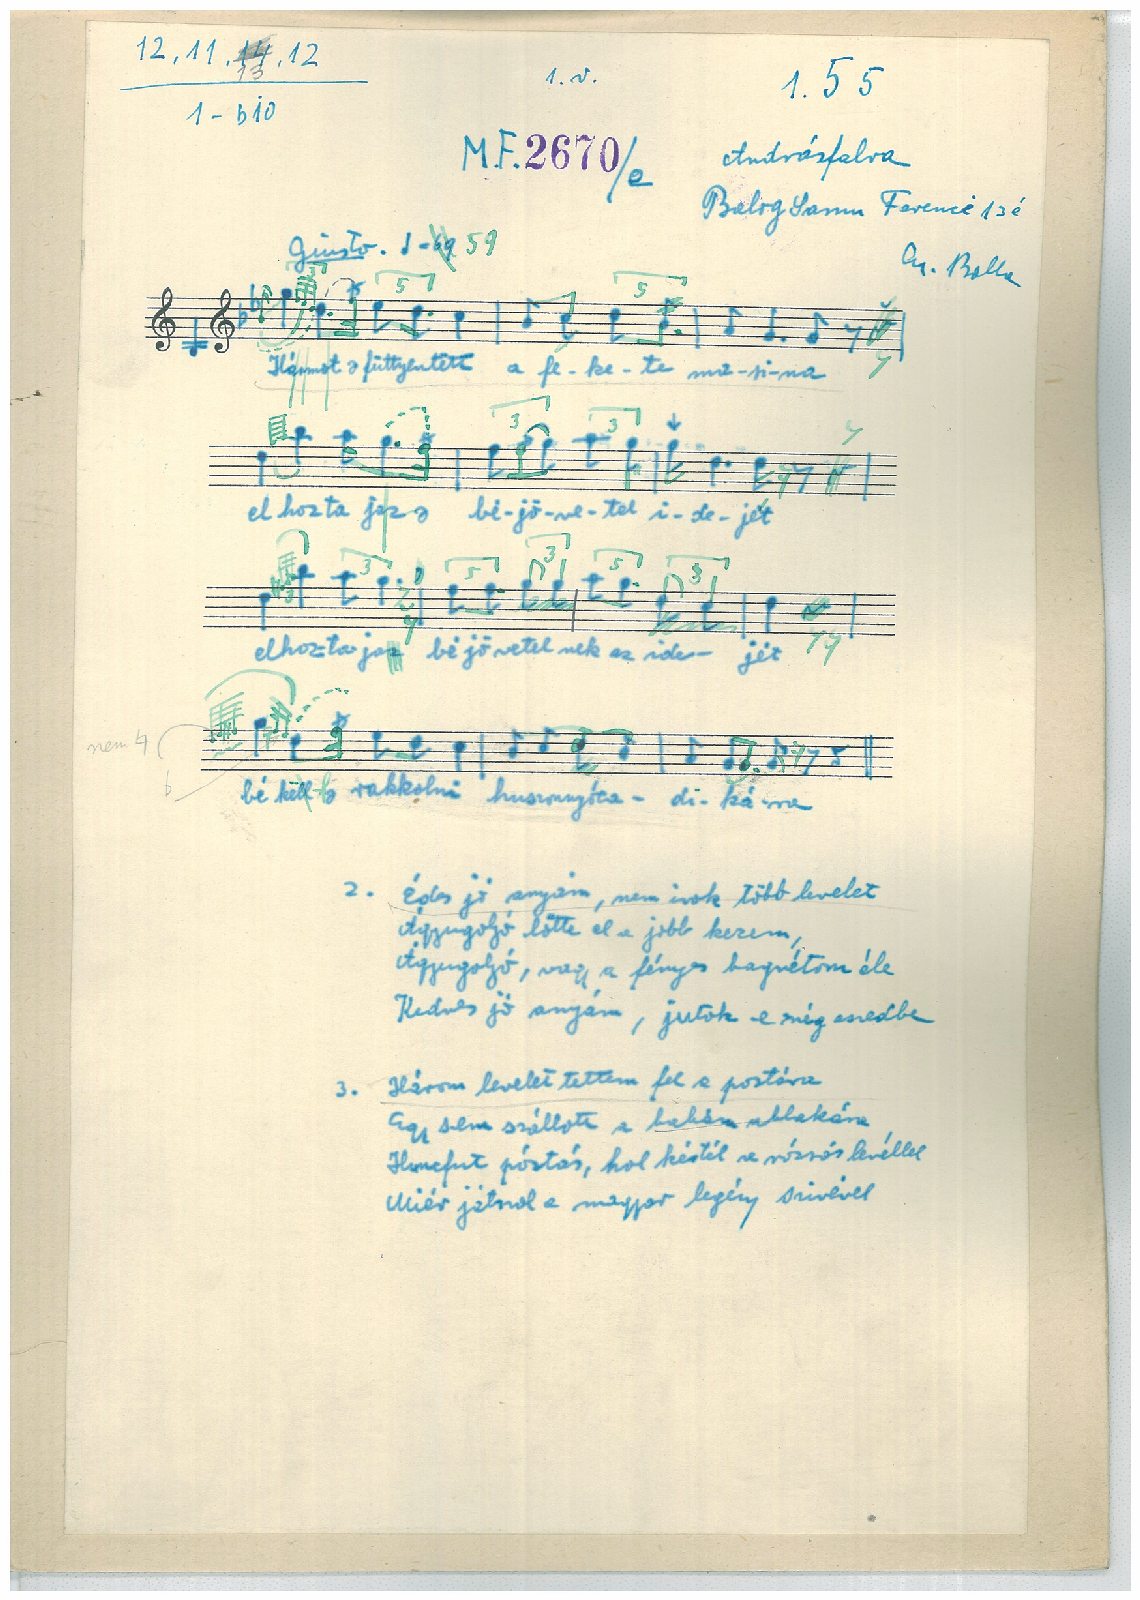 12, 11, 13, 12
1 - b10
1. v.
1. 5 5
M.F. 2670/e
Andrásfalva
Balog Samu Ferencé
Giusto. 59
Hármot a füttyentett a fe-ke-te ma-si-na
5 5
el hozta jaz a bé-jö-ve-tel i-de-jét
3 3
elhozta jaz bé jövetelnek az ide- jét
3 5 3 5 3
nem 4
b
bé kell rakkolni huszonnyóca- di-ká-ra
2. Édes jó anyám, nem irok több levelet
Ágyugolyó lőtte el a jobb kezem,
Ágyugolyó, vagy a fényes bagnétom éle
Kedves jó anyám, jutok-e még eszedbe
3. Három levelet tettem fel a postára
Egy sem szállott a babám ablakára
Huncfut póstás, hol késtél a rózsás levéllel
Miér játszol a magyar legény szivével